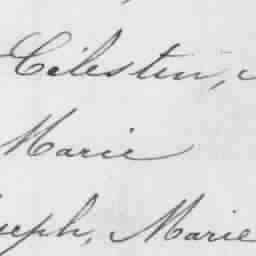 Célestin,
Marie
seph, Marie